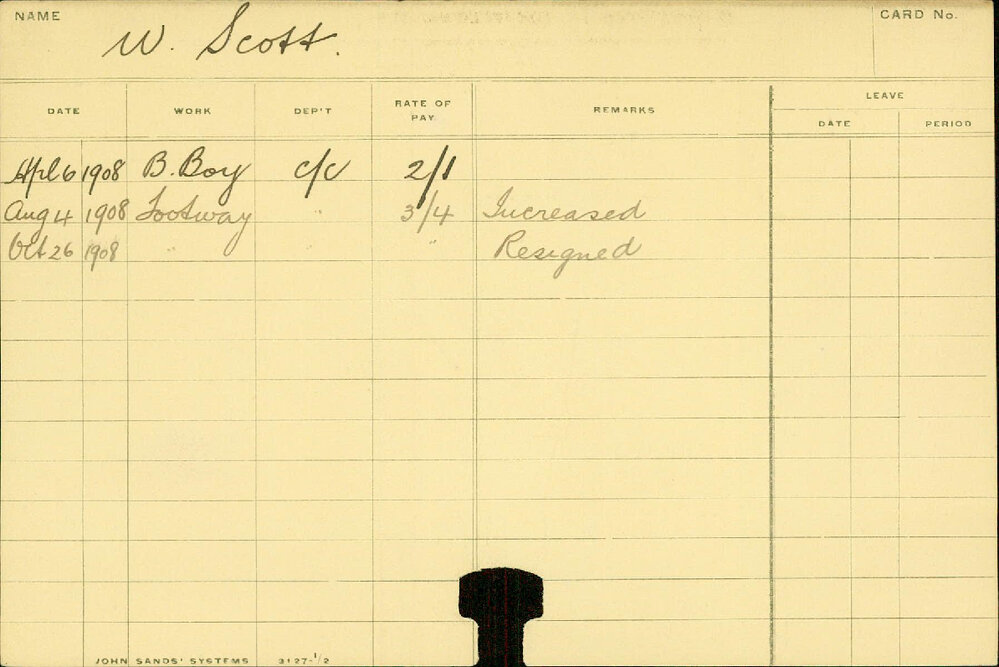 NAME
W. Scott.
CARD No.
DATE WORK DEP'T RATE OF PAY REMARKS LEAVE
DATE PERIOD
Apl 6 1908 B. Boy c/c 2/1
Aug 4 1908 Footway " 3/4 Increased
Oct 26 1908 " " Resigned
JOHN SANDS' SYSTEMS 3127-1/2